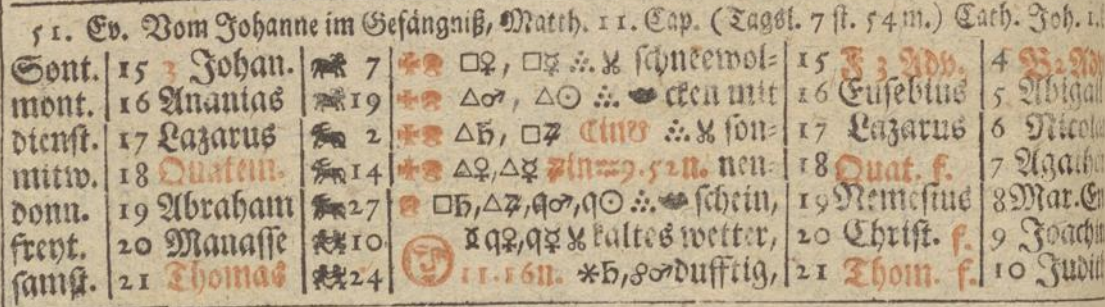 51. Ev. Vom Johanne im Gefängniß, Matth. 11. Cap. (Tagsl. 7 st. 54 m.) Cath. Joh. 1.
Sont. 15 3 Johan. 7 □♀, □☿ ∴ schneewol= 15 F 3 Adv. 4 B 2 Ad
mont. 16 Ananias 19 △♂, △☉ ∴ cken mit 16 Eusebius 5 Abigail
dienst. 17 Lazarus 2 △♄, □♃ ☾in♉ ∴ son= 17 Lazarus 6 Nicola
mitw. 18 Quatem. 14 △♀, △☿ ♃in♒9.52n. nen= 18 Quat. f. 7 Agathe
donn. 19 Abraham 27 □♄, △♃, q♂, q☉ ∴ schein, 19 Nemesius 8 Mar. Em
freyt. 20 Manasse 10 q♀, q☿ kaltes wetter, 20 Christ. f. 9 Joachim
samst. 21 Thomas 24 11.16n. ⚹♄, ☍♂ dufftig, 21 Thom. f. 10 Judith